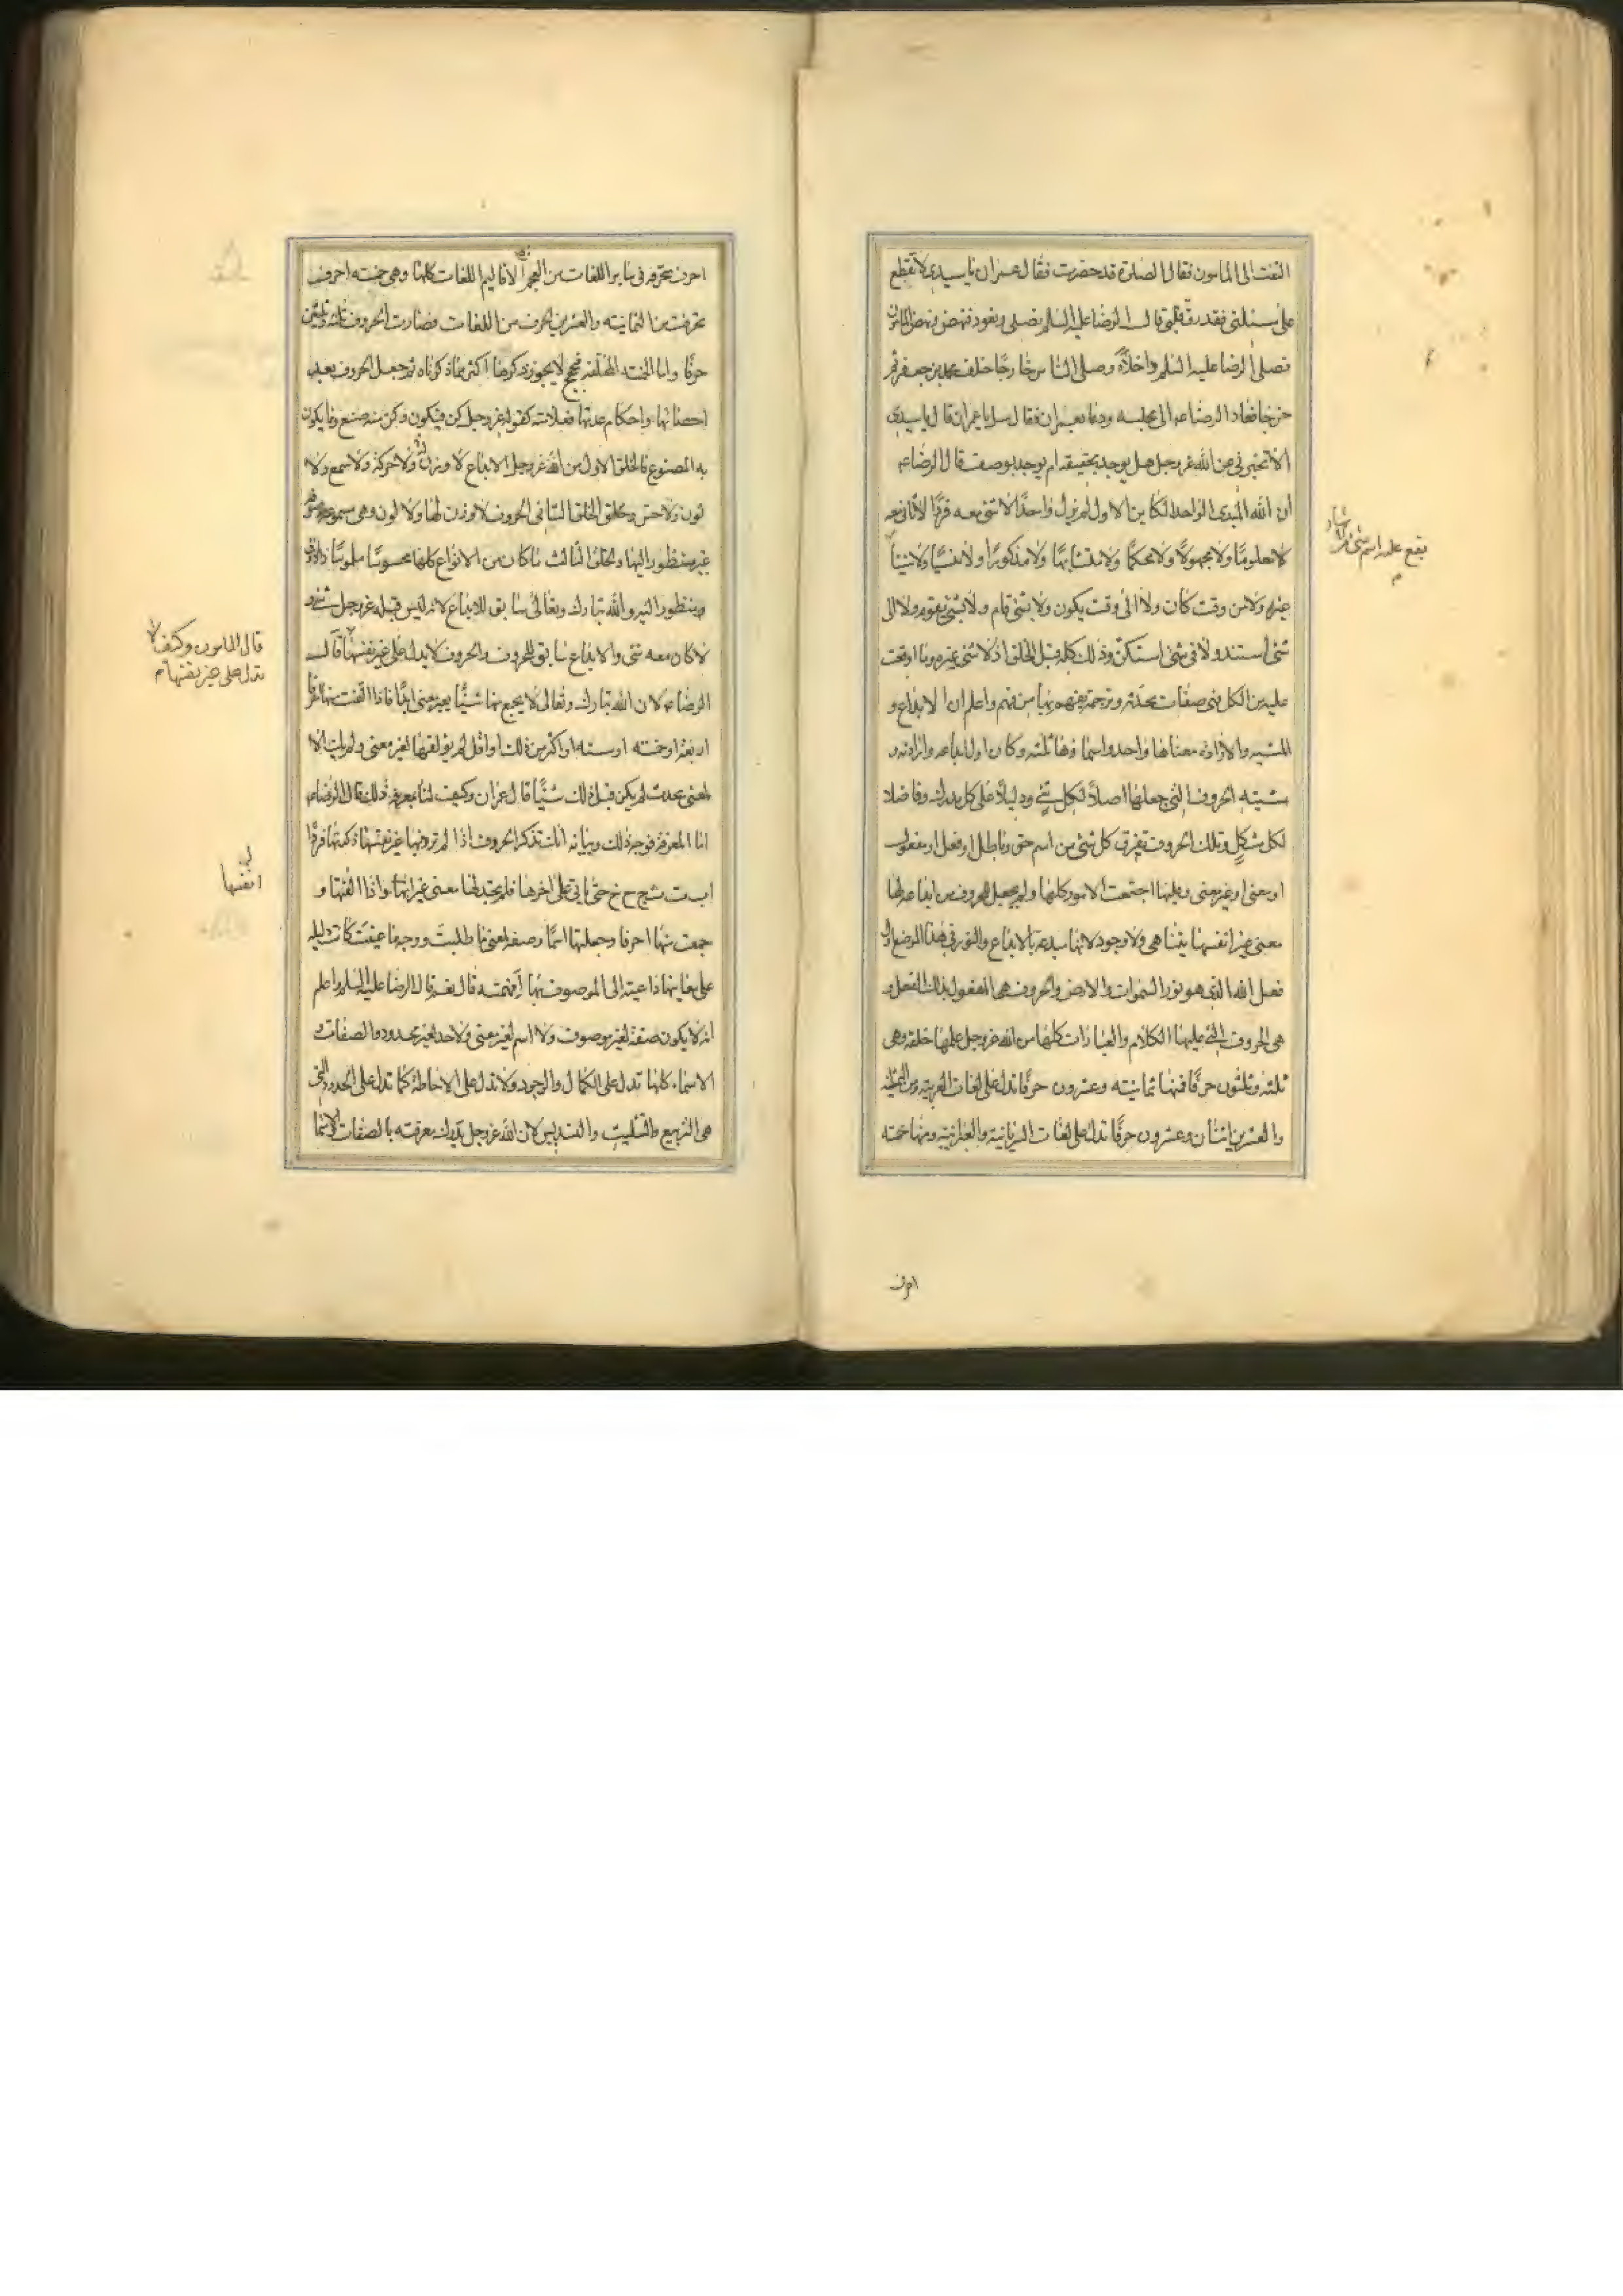 التفت الى المامون فقال الصلوة قد حضرت فقال عمران يا سيدى لا تقطع
على مسئلتى فقد رق قلبى قال الرضا عليه السلم نصلى ونعود فنهض ونهض المامون
فصلى الرضا عليه السلم داخلا وصلى الناس خارجا خلف محمد بن جعفر ثم
خرجا فعاد الرضا ع الى مجلسه ودعا بعمران فقال سل يا عمران قال يا سيدى
الا تخبرنى عن الله عز وجل هل يوحد بحقيقة ام يوحد بوصف قال الرضا ع
ان الله المبدى الواحد الكاين الاول لم يزل واحدا لا شئ معه فردا لا ثانى معه
لا معلوما ولا مجهولا ولا محكما ولا متشابها ولا مذكورا ولا منسيا ولا شيئا
يقع عليه اسم شئ من الاشياء
غيره ولا من وقت كان ولا الى وقت يكون ولا بشئ قام ولا بشئ يقوم ولا الى
شئ استند ولا فى شئ استكن وذلك كله قبل الخلق اذ لا شئ غيره وما اوقعت
عليه من الكل فهى صفات محدثه وترجمة يفهم بها من فهم واعلم ان الابداع و
المشيه والاراده معناها واحد واسماوها ثلثه وكان اول ابداعه وارادته و
مشيته الحروف التى جعلها اصلا لكل شئ ودليلا على كل مدرك وفاصلا
لكل مشكل وتلك الحروف تفريق كل شئ من اسم حق وباطل او فعل او مفعول
او معنى او غير معنى وعليها اجتمعت الامور كلها ولم يجعل للحروف من ابداعه لها
معنى غير انفسها يتناهى ولا وجود لانها مبدعه بالابداع والنور فى هذا الموضع اول
فعل الله الذى هو نور السموات والارض والحروف هى المفعول بذلك الفعل و
هى الحروف التى عليها الكلام والعبارات كلها من الله عز وجل علمها خلقه وهى
ثلثه وثلثون حرفا فمنها ثمانيه وعشرون حرفا تدل على لغات العربيه ومن الثمانيه
والعشرين اثنان وعشرون حرفا تدل على لغات السريانيه والعبرانيه ومنها خمسه
احرف
احرف متحرفه فى ساير اللغات من العجم الاقاليم اللغات كلها وهى خمسه احرف
تحرفت من الثمانيه والعشرين الحرف من اللغات فصارت الحروف ثلثه وثلثين
حرفا واما الخمسه المختلفه فحجج لا يجوز ذكرها اكثر مما ذكرناه ثم جعل الحروف بعد
احصائها واحكام عدتها فعلا منه كقوله عز وجل كن فيكون وكن منه صنع وما يكون
به المصنوع فالخلق الاول من الله عز وجل الابداع لا وزن له ولا حركة ولا سمع ولا
لون ولا حس والخلق الثانى الحروف لا وزن لها ولا لون وهى مسموعه موصوفه
غير منظور اليها والخلق الثالث ما كان من الانواع كلها محسوسا ملموسا ذا ذوق
منظور اليه والله تبارك وتعالى سابق للابداع لانه ليس قبله عز وجل شئ و
لا كان معه شئ والابداع سابق للحروف والحروف لا يدل على غير نفسها قال
قال المامون وكيف لا
تدل على غير نفسها
الرضا ع لان الله تبارك وتعالى لا يجمع منها شيئا بغير معنى ابدا فاذا الفت منها احرفا
اربعة او خمسه او سته او اكثر من ذلك او اقل لم يؤلفها لغير معنى ولم يك الا
لمعنى محدث لم يكن قبل ذلك شيئا قال عمران وكيف لنا بمعرفة ذلك قال الرضا ع
اما المعرفة فوجه ذلك وبيانه انك تذكر الحروف اذا لم ترد بها غير نفسها ذكرتها فردا
ا ب ت ث ج ح خ حتى تاتى على اخرها فلم تجد لها معنى غير انها واذا الفتها و
انفسها
جمعت منها احرفا وجعلتها اسما وصفة لمعنى ما طلبت ووجه ما عنيت كانت دليله
على معانيها داعيه الى الموصوف بها افهمته قال نعم قال الرضا عليه السلم واعلم
انه لا يكون صفة لغير موصوف ولا اسم لغير معنى ولا حد لغير محدود والصفات و
الاسماء كلها تدل على الكمال والوجود ولا تدل على الاحاطة كما تدل على الحدود التى
هى التربيع والتثليث والتسديس لان الله عز وجل تدرك معرفته بالصفات والاسما